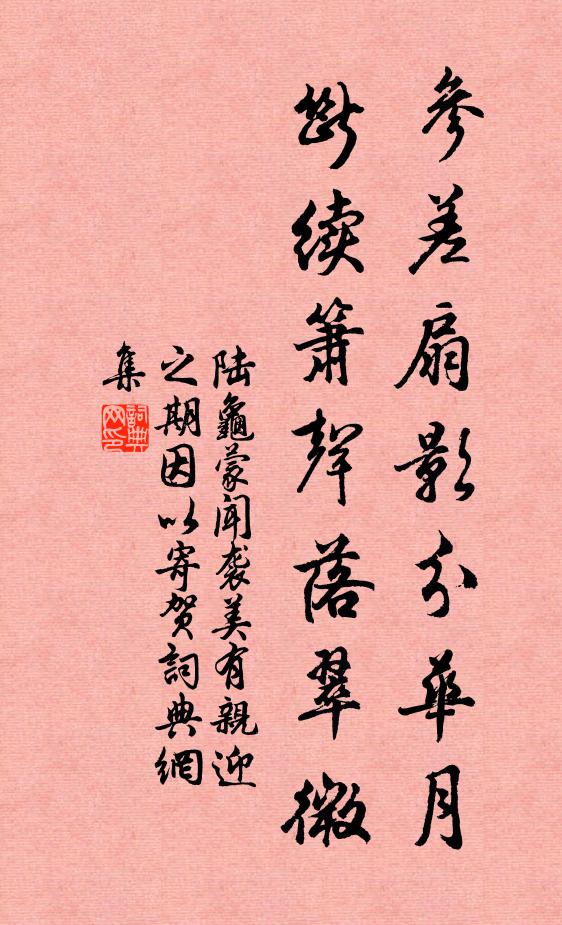 參差扇影分華月
斷續簫聲落翠微
陆龜蒙闻袭美有親迎
之期因以寄贺詞典網
集
詞典
网印